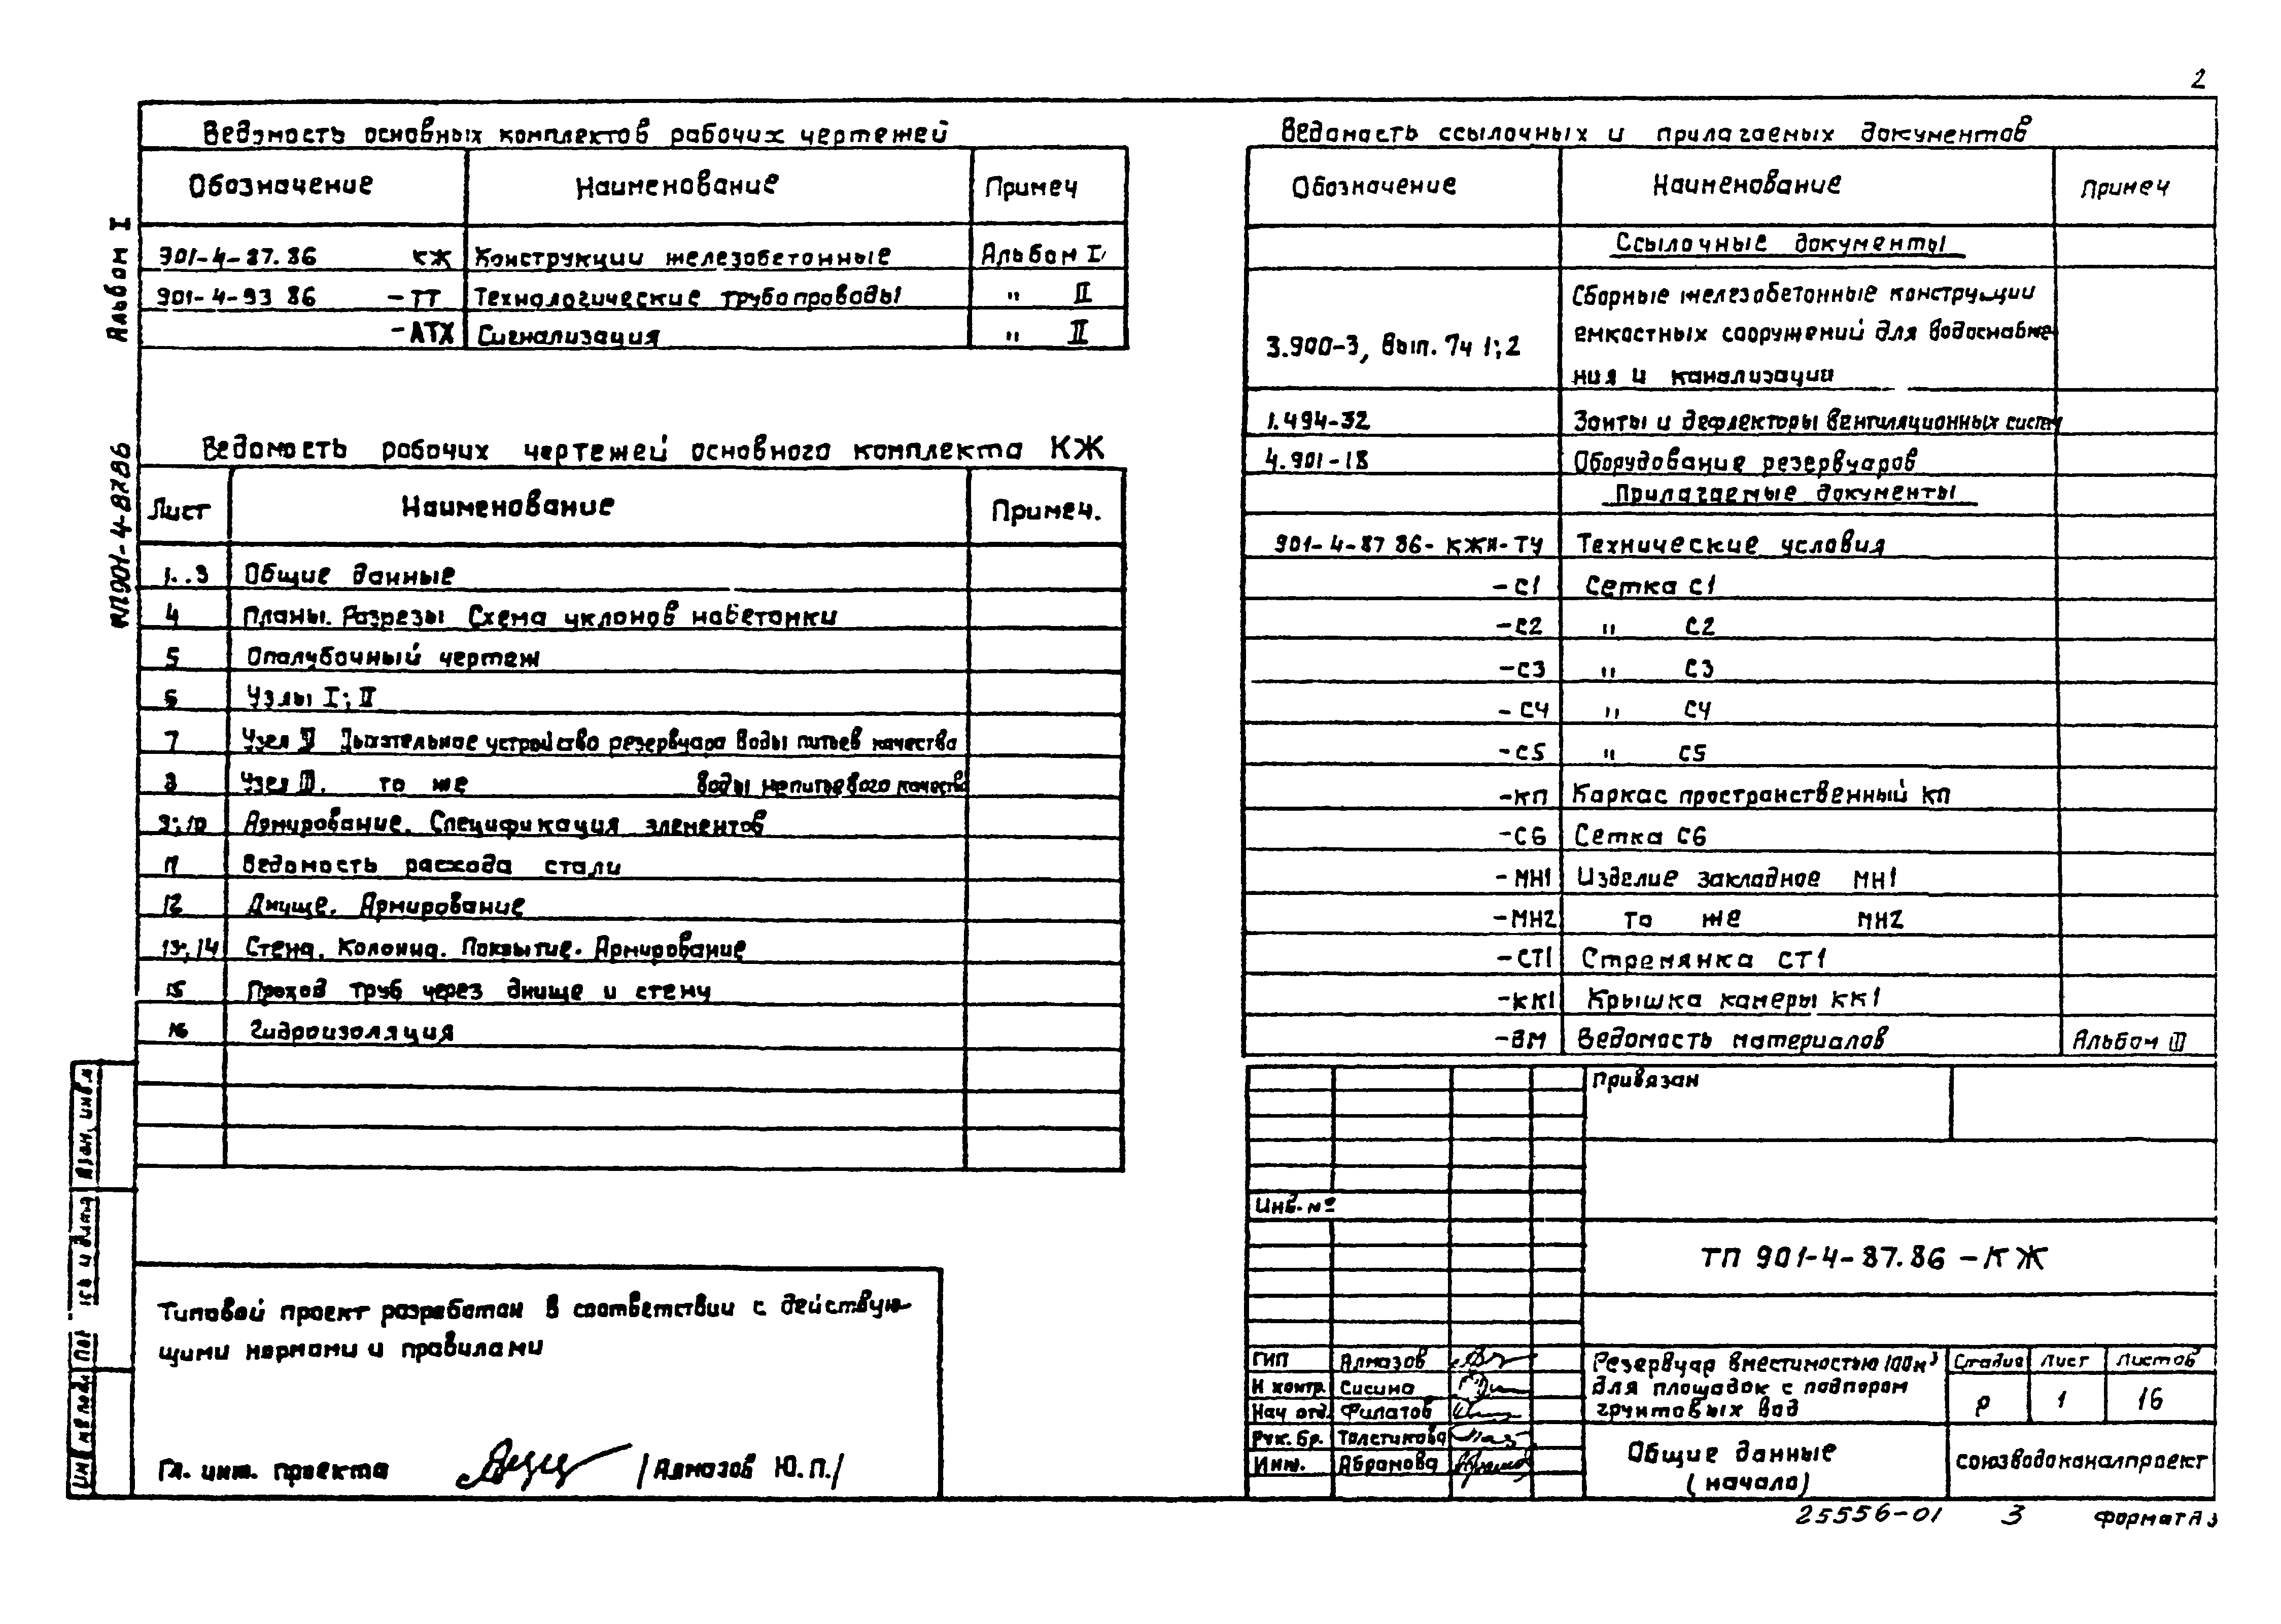 2
Ведомость основных комплектов рабочих чертежей
Обозначение Наименование Примеч
901-4-87.86 КЖ Конструкции железобетонные Альбом I
901-4-93 86 -ТТ Технологические трубопроводы " II
-АТХ Сигнализация " II
Ведомость рабочих чертежей основного комплекта КЖ
Лист Наименование Примеч.
1..3 Общие данные
4 Планы. Разрезы Схема уклонов набетонки
5 Опалубочный чертеж
6 Узлы I; II
7 Узел Дыхательное устройство резервуара воды питьев качества
8 Узел III. то же воды непитьевого качества
9; 10 Армирование. Спецификация элементов
11 Ведомость расхода стали
12 Днище. Армирование
13; 14 Стена. Колонна. Покрытие. Армирование
15 Проход труб через днище и стену
16 Гидроизоляция
Типовой проект разработан в соответствии с действую-
щими нормами и правилами
Гл. инж. проекта /Алмазов Ю.П./
Альбом I
ТП901-4-87.86
Взам. инв.
Ведомость ссылочных и прилагаемых документов
Обозначение Наименование Примеч
Ссылочные документы
Сборные железобетонные конструкции
3.900-3, Вып. 7ч 1; 2 емкостных сооружений для водоснабже-
ния и канализации
1.494-32 Зонты и дефлекторы вентиляционных систем
4.901-18 Оборудование резервуаров
Прилагаемые документы
901-4-87 86- КЖИ-ТУ Технические условия
-С1 Сетка С1
-С2 " С2
-С3 " С3
-С4 " С4
-С5 " С5
-КП Каркас пространственный КП
-С6 Сетка С6
-МН1 Изделие закладное МН1
-МН2 то же МН2
-СТ1 Стремянка СТ1
-КК1 Крышка камеры КК1
-ВМ Ведомость материалов Альбом III
Привязан
Инв. №
ТП 901-4-87.86 -КЖ
ГИП Алмазов
Н контр. Сисина
Нач отд. Филатов
Рук. бр. Толстикова
Инж. Абрамова
Резервуар вместимостью 100м³
для площадок с подпором
грунтовых вод
Стадия Лист Листов
Р 1 16
Общие данные
(начало)
Союзводоканалпроект
25556-01 3 Формат А3